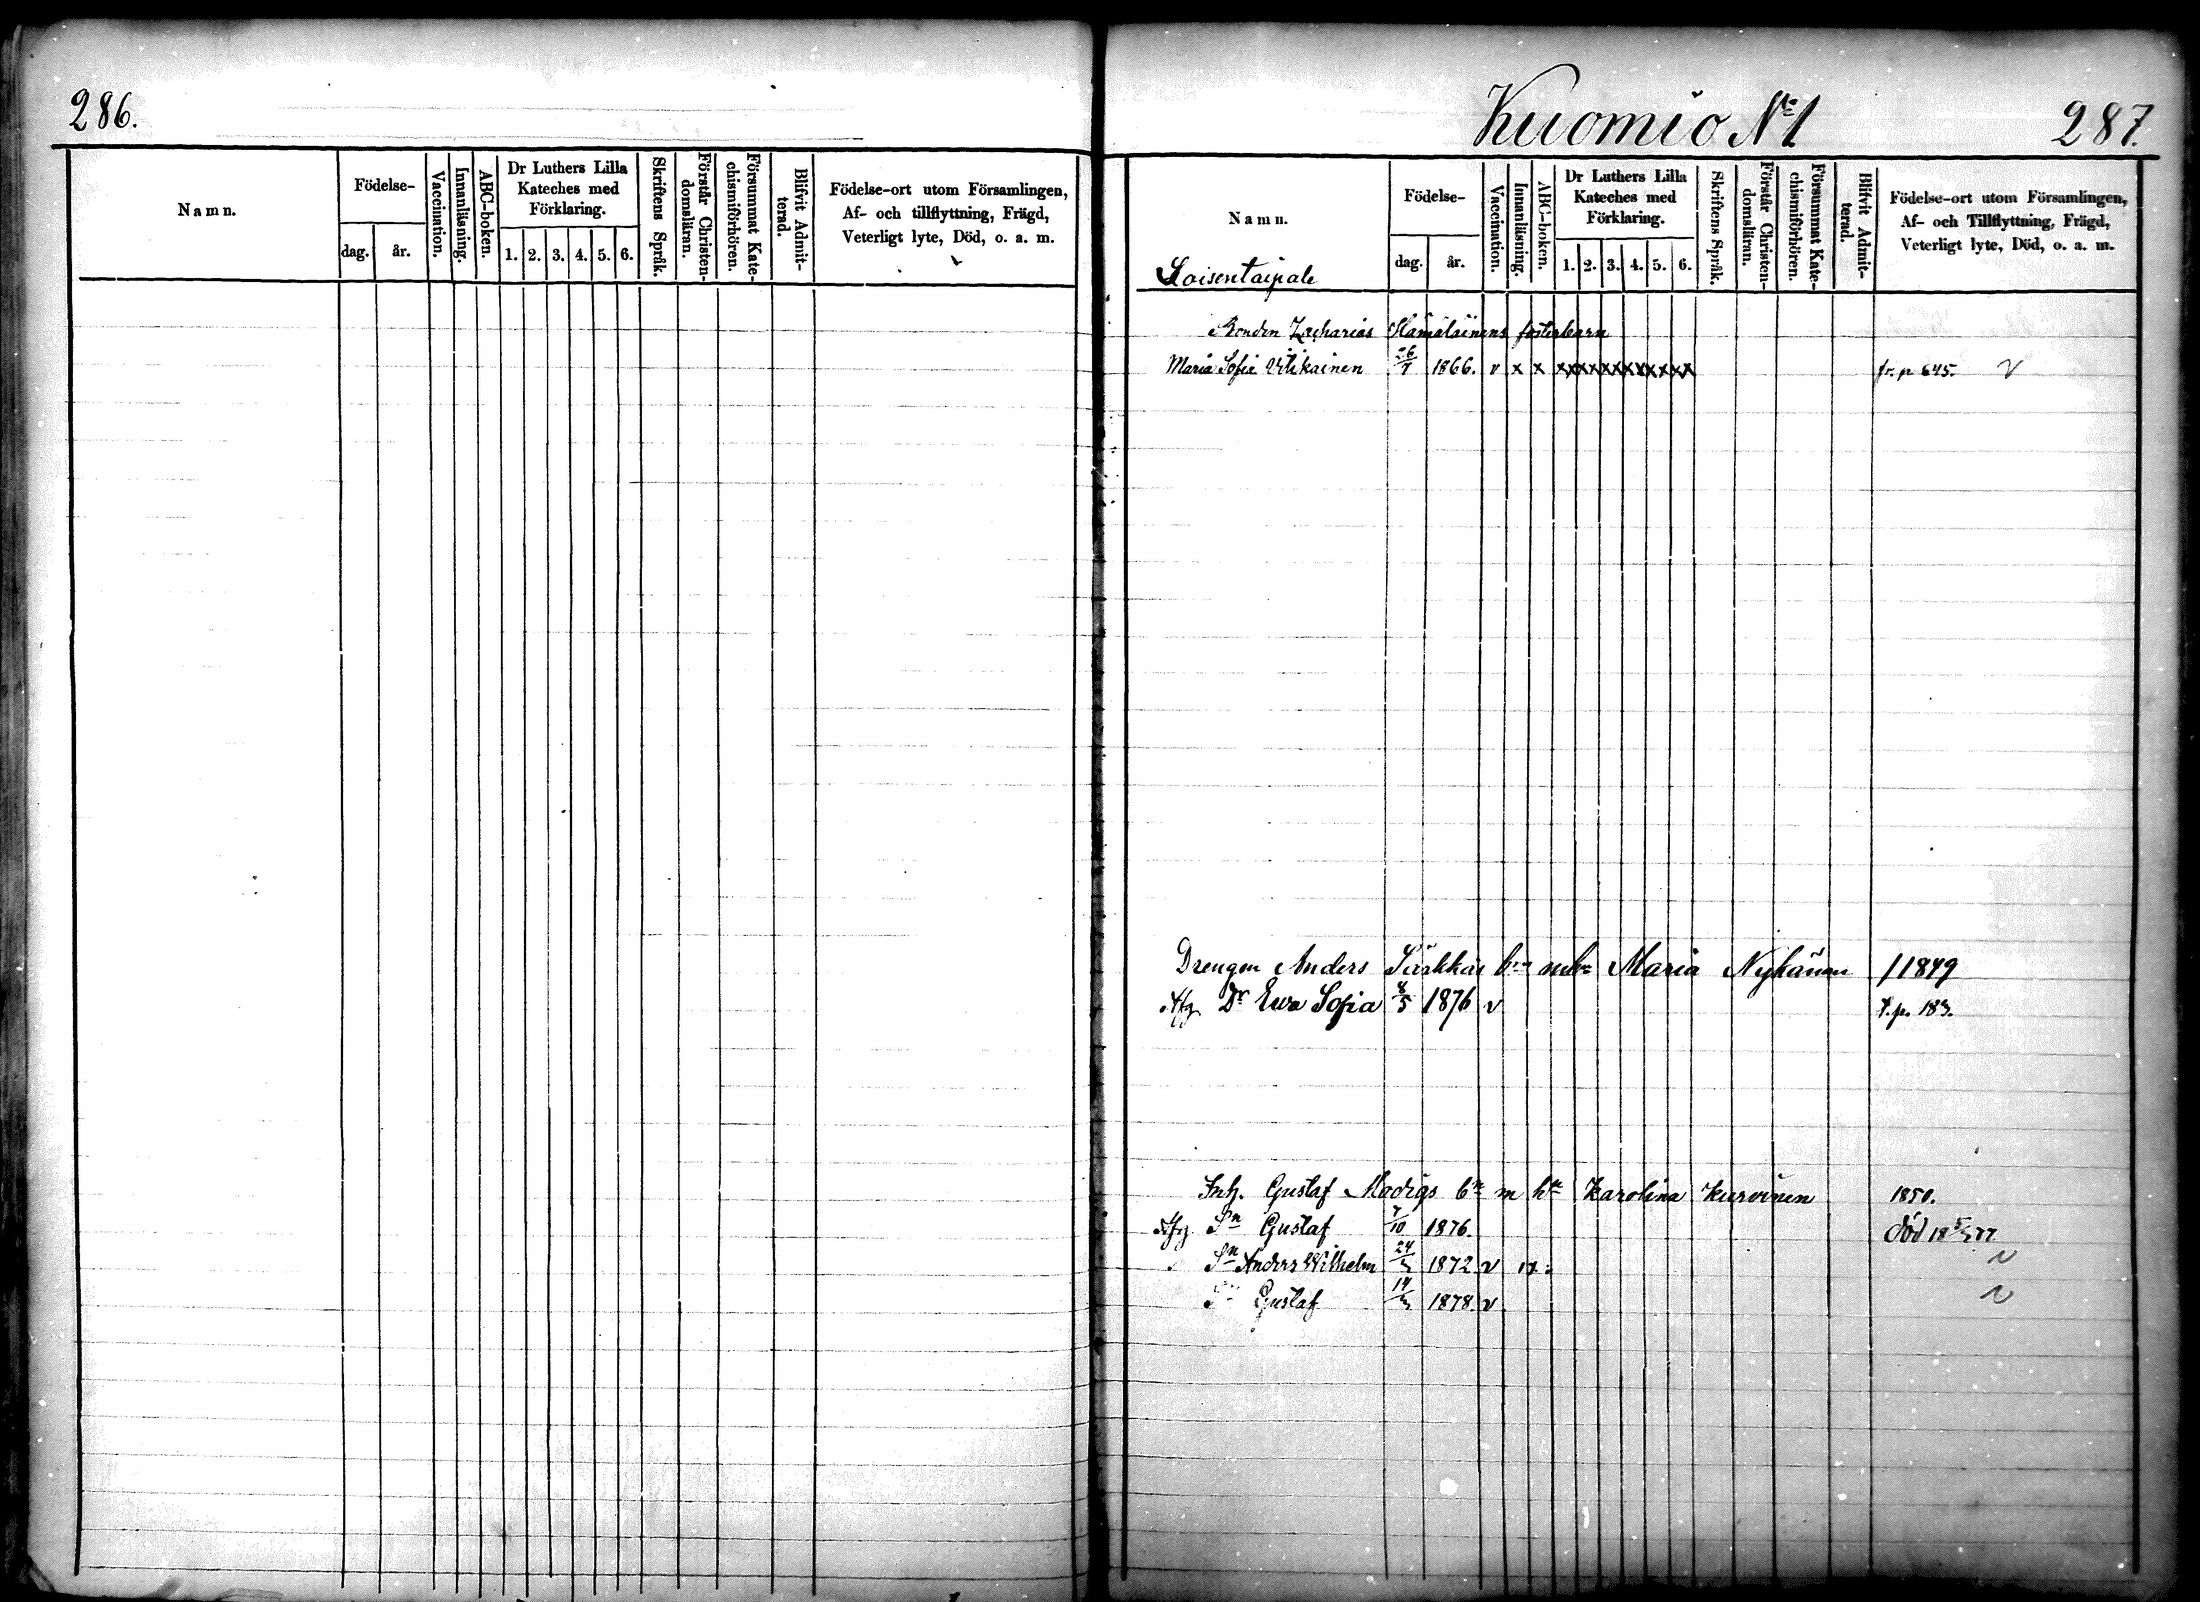 286.
Namn.
Födelse-
dag.
år.
Vaccination.
Innanläsning.
ABC-boken.
Dr Luthers Lilla
Kateches med
Förklaring.
1. 2. 3. 4. 5. 6.
Skriftens Språk.
Förstår Christen-
domsläran.
Försummat Kate-
chismiförhören.
Blifvit Admit-
terad.
Födelse-ort utom Församlingen,
Af- och tillflyttning, Frägd,
Veterligt lyte, Död, o. a. m.
Kuomio No 1
287.
Namn.
Loisentaipale
Födelse-
dag.
år.
Vaccination.
Innanläsning.
ABC-boken.
Dr Luthers Lilla
Kateches med
Förklaring.
1. 2. 3. 4. 5. 6.
Skriftens Språk.
Förstår Christen-
domsläran.
Försummat Kate-
chismiförhören.
Blifvit Admit-
terad.
Födelse-ort utom Församlingen,
Af- och Tillflyttning, Frägd,
Veterligt lyte, Död, o. a. m.
Bonden Zacharias Hämäläinens fosterbarn
Maria Sofia 1866. v x x xxxxxxxxxxxx fr. p 645. v
Drengen Anders Särkkäs bn mhu Maria Nykänen 1849
Dr Ewa Sofia 8/5 1876 v
Inh. Gustaf bn m hu Karolina Kurvinen 1850.
Sn Gustaf 7/10 1876. död
Sn Anders Wilhelm 1872 v v
Gustaf 1878. v v